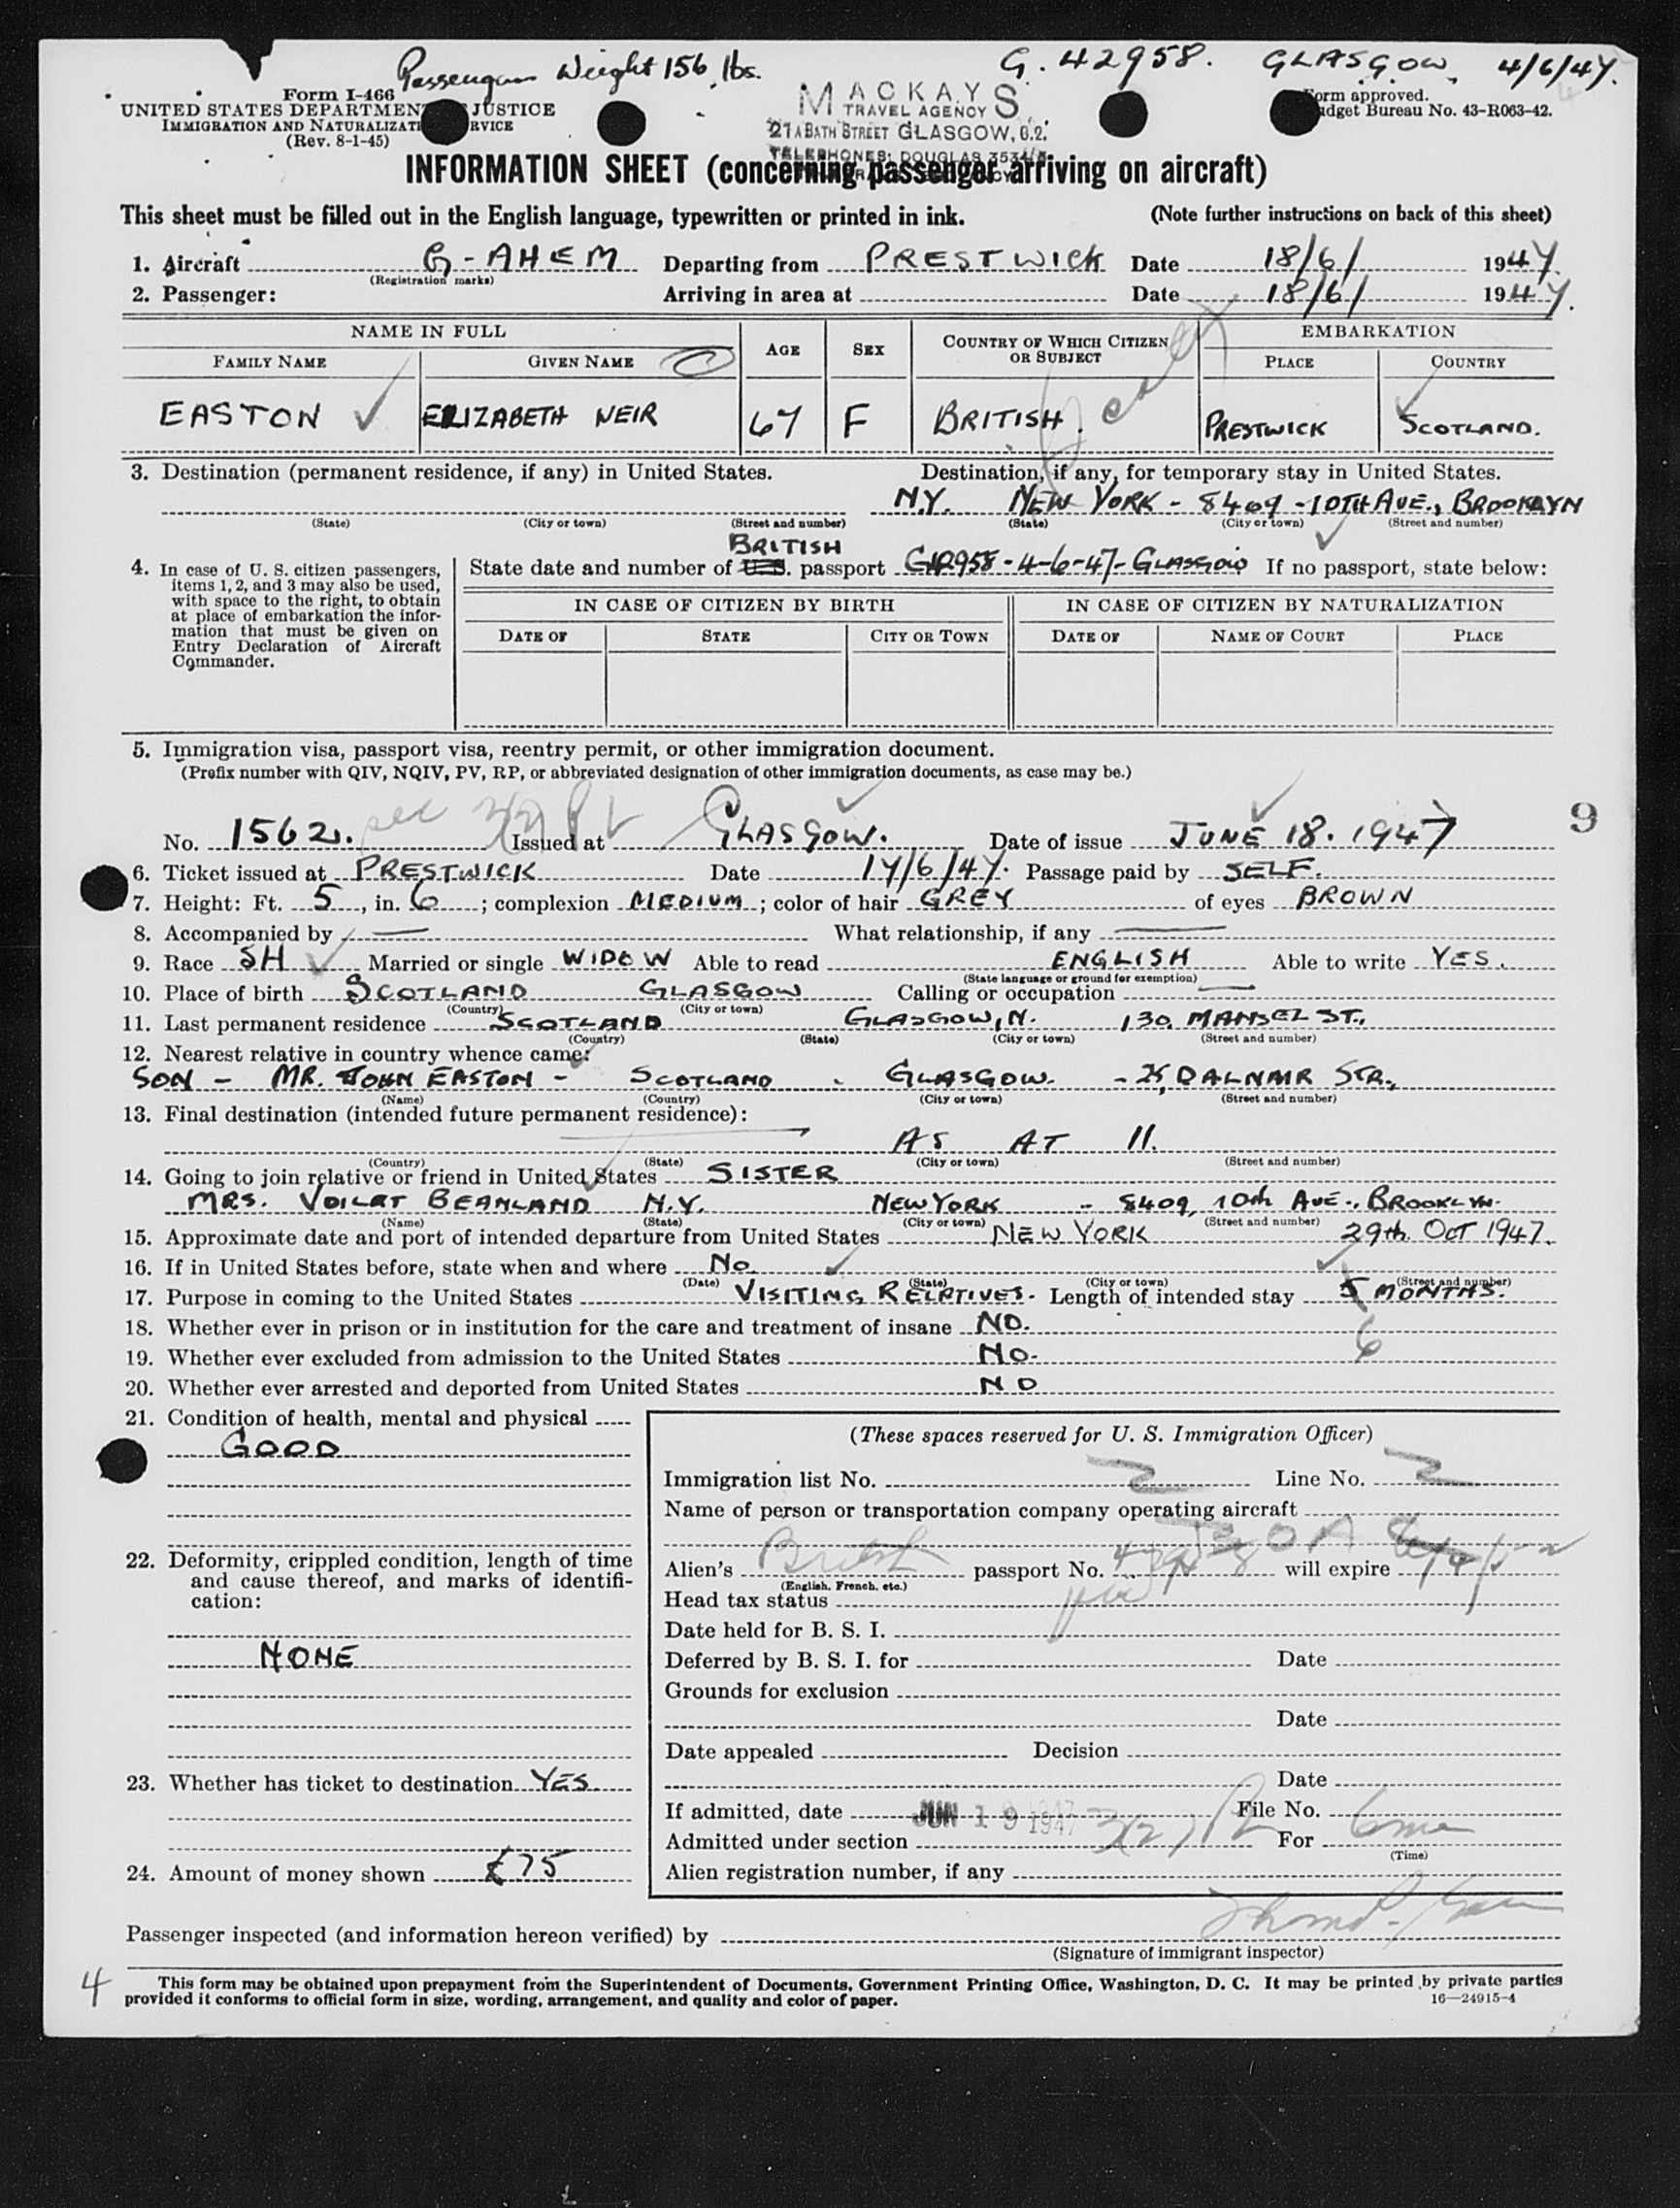 Passenger Weight 156 lbs. G. 42958. GLASGOW. 4/6/47.
Form I-466
UNITED STATES DEPARTMENT JUSTICE
IMMIGRATION AND NATURALIZATI RVICE
(Rev. 8-1-45)
MACKAYS
TRAVEL AGENCY
21A BATH STREET GLASGOW, C.2.
TELEPHONES: DOUGLAS
Form approved.
dget Bureau No. 43-R063-42.
INFORMATION SHEET (concerning passenger arriving on aircraft)
This sheet must be filled out in the English language, typewritten or printed in ink. (Note further instructions on back of this sheet)
1. Aircraft G-AHEM Departing from PRESTWICK Date 18/6/ 1947.
(Registration marks)
2. Passenger: Arriving in area at Date 18/6/ 1947.
NAME IN FULL AGE SEX COUNTRY OF WHICH CITIZEN OR SUBJECT EMBARKATION
FAMILY NAME GIVEN NAME PLACE COUNTRY
EASTON ELIZABETH WEIR 67 F BRITISH. PRESTWICK SCOTLAND.
3. Destination (permanent residence, if any) in United States. Destination, if any, for temporary stay in United States.
N.Y. NEW YORK - 8409 - 10TH AVE., BROOKLYN
(State) (City or town) (Street and number) (State) (City or town) (Street and number)
BRITISH
4. In case of U. S. citizen passengers, items 1, 2, and 3 may also be used, with space to the right, to obtain at place of embarkation the information that must be given on Entry Declaration of Aircraft Commander.
State date and number of U. S. passport G42958-4-6-47-GLASGOW If no passport, state below:
IN CASE OF CITIZEN BY BIRTH IN CASE OF CITIZEN BY NATURALIZATION
DATE OF STATE CITY OR TOWN DATE OF NAME OF COURT PLACE
5. Immigration visa, passport visa, reentry permit, or other immigration document.
(Prefix number with QIV, NQIV, PV, RP, or abbreviated designation of other immigration documents, as case may be.)
9
No. 1562. sec 3(2) PV Issued at GLASGOW. Date of issue JUNE 18. 1947
6. Ticket issued at PRESTWICK Date 17/6/47. Passage paid by SELF.
7. Height: Ft. 5, in. 6; complexion MEDIUM; color of hair GREY of eyes BROWN
8. Accompanied by — What relationship, if any —
9. Race SH Married or single WIDOW Able to read ENGLISH Able to write YES.
(State language or ground for exemption)
10. Place of birth SCOTLAND GLASGOW Calling or occupation —
(Country) (City or town)
11. Last permanent residence SCOTLAND GLASGOW, N. 130, MANSEL ST.,
(Country) (State) (City or town) (Street and number)
12. Nearest relative in country whence came:
SON - MR. JOHN EASTON - SCOTLAND - GLASGOW. - DALNAIR STR.,
(Name) (Country) (City or town) (Street and number)
13. Final destination (intended future permanent residence):
AS AT 11.
(Country) (State) (City or town) (Street and number)
14. Going to join relative or friend in United States SISTER
MRS. VOILET BEANLAND N.Y. NEW YORK - 8409, 10th AVE., BROOKLYN.
(Name) (State) (City or town) (Street and number)
15. Approximate date and port of intended departure from United States NEW YORK 29th. OCT 1947.
16. If in United States before, state when and where No.
(Date) (State) (City or town) (Street and number)
17. Purpose in coming to the United States VISITING RELATIVES. Length of intended stay 5 MONTHS.
6
18. Whether ever in prison or in institution for the care and treatment of insane NO.
19. Whether ever excluded from admission to the United States No.
20. Whether ever arrested and deported from United States NO
21. Condition of health, mental and physical
GOOD
22. Deformity, crippled condition, length of time and cause thereof, and marks of identification:
NONE
23. Whether has ticket to destination YES.
24. Amount of money shown £75
(These spaces reserved for U. S. Immigration Officer)
Immigration list No. 2 Line No. 2
Name of person or transportation company operating aircraft
BOAC
Alien's British passport No. will expire
(English, French, etc.)
Head tax status
Date held for B. S. I.
Deferred by B. S. I. for Date
Grounds for exclusion
Date
Date appealed Decision
Date
If admitted, date JUN 19 1947 File No.
Admitted under section 3(2) For 6 mos
(Time)
Alien registration number, if any
Passenger inspected (and information hereon verified) by
(Signature of immigrant inspector)
4
This form may be obtained upon prepayment from the Superintendent of Documents, Government Printing Office, Washington, D. C. It may be printed by private parties
provided it conforms to official form in size, wording, arrangement, and quality and color of paper.
16—24915-4